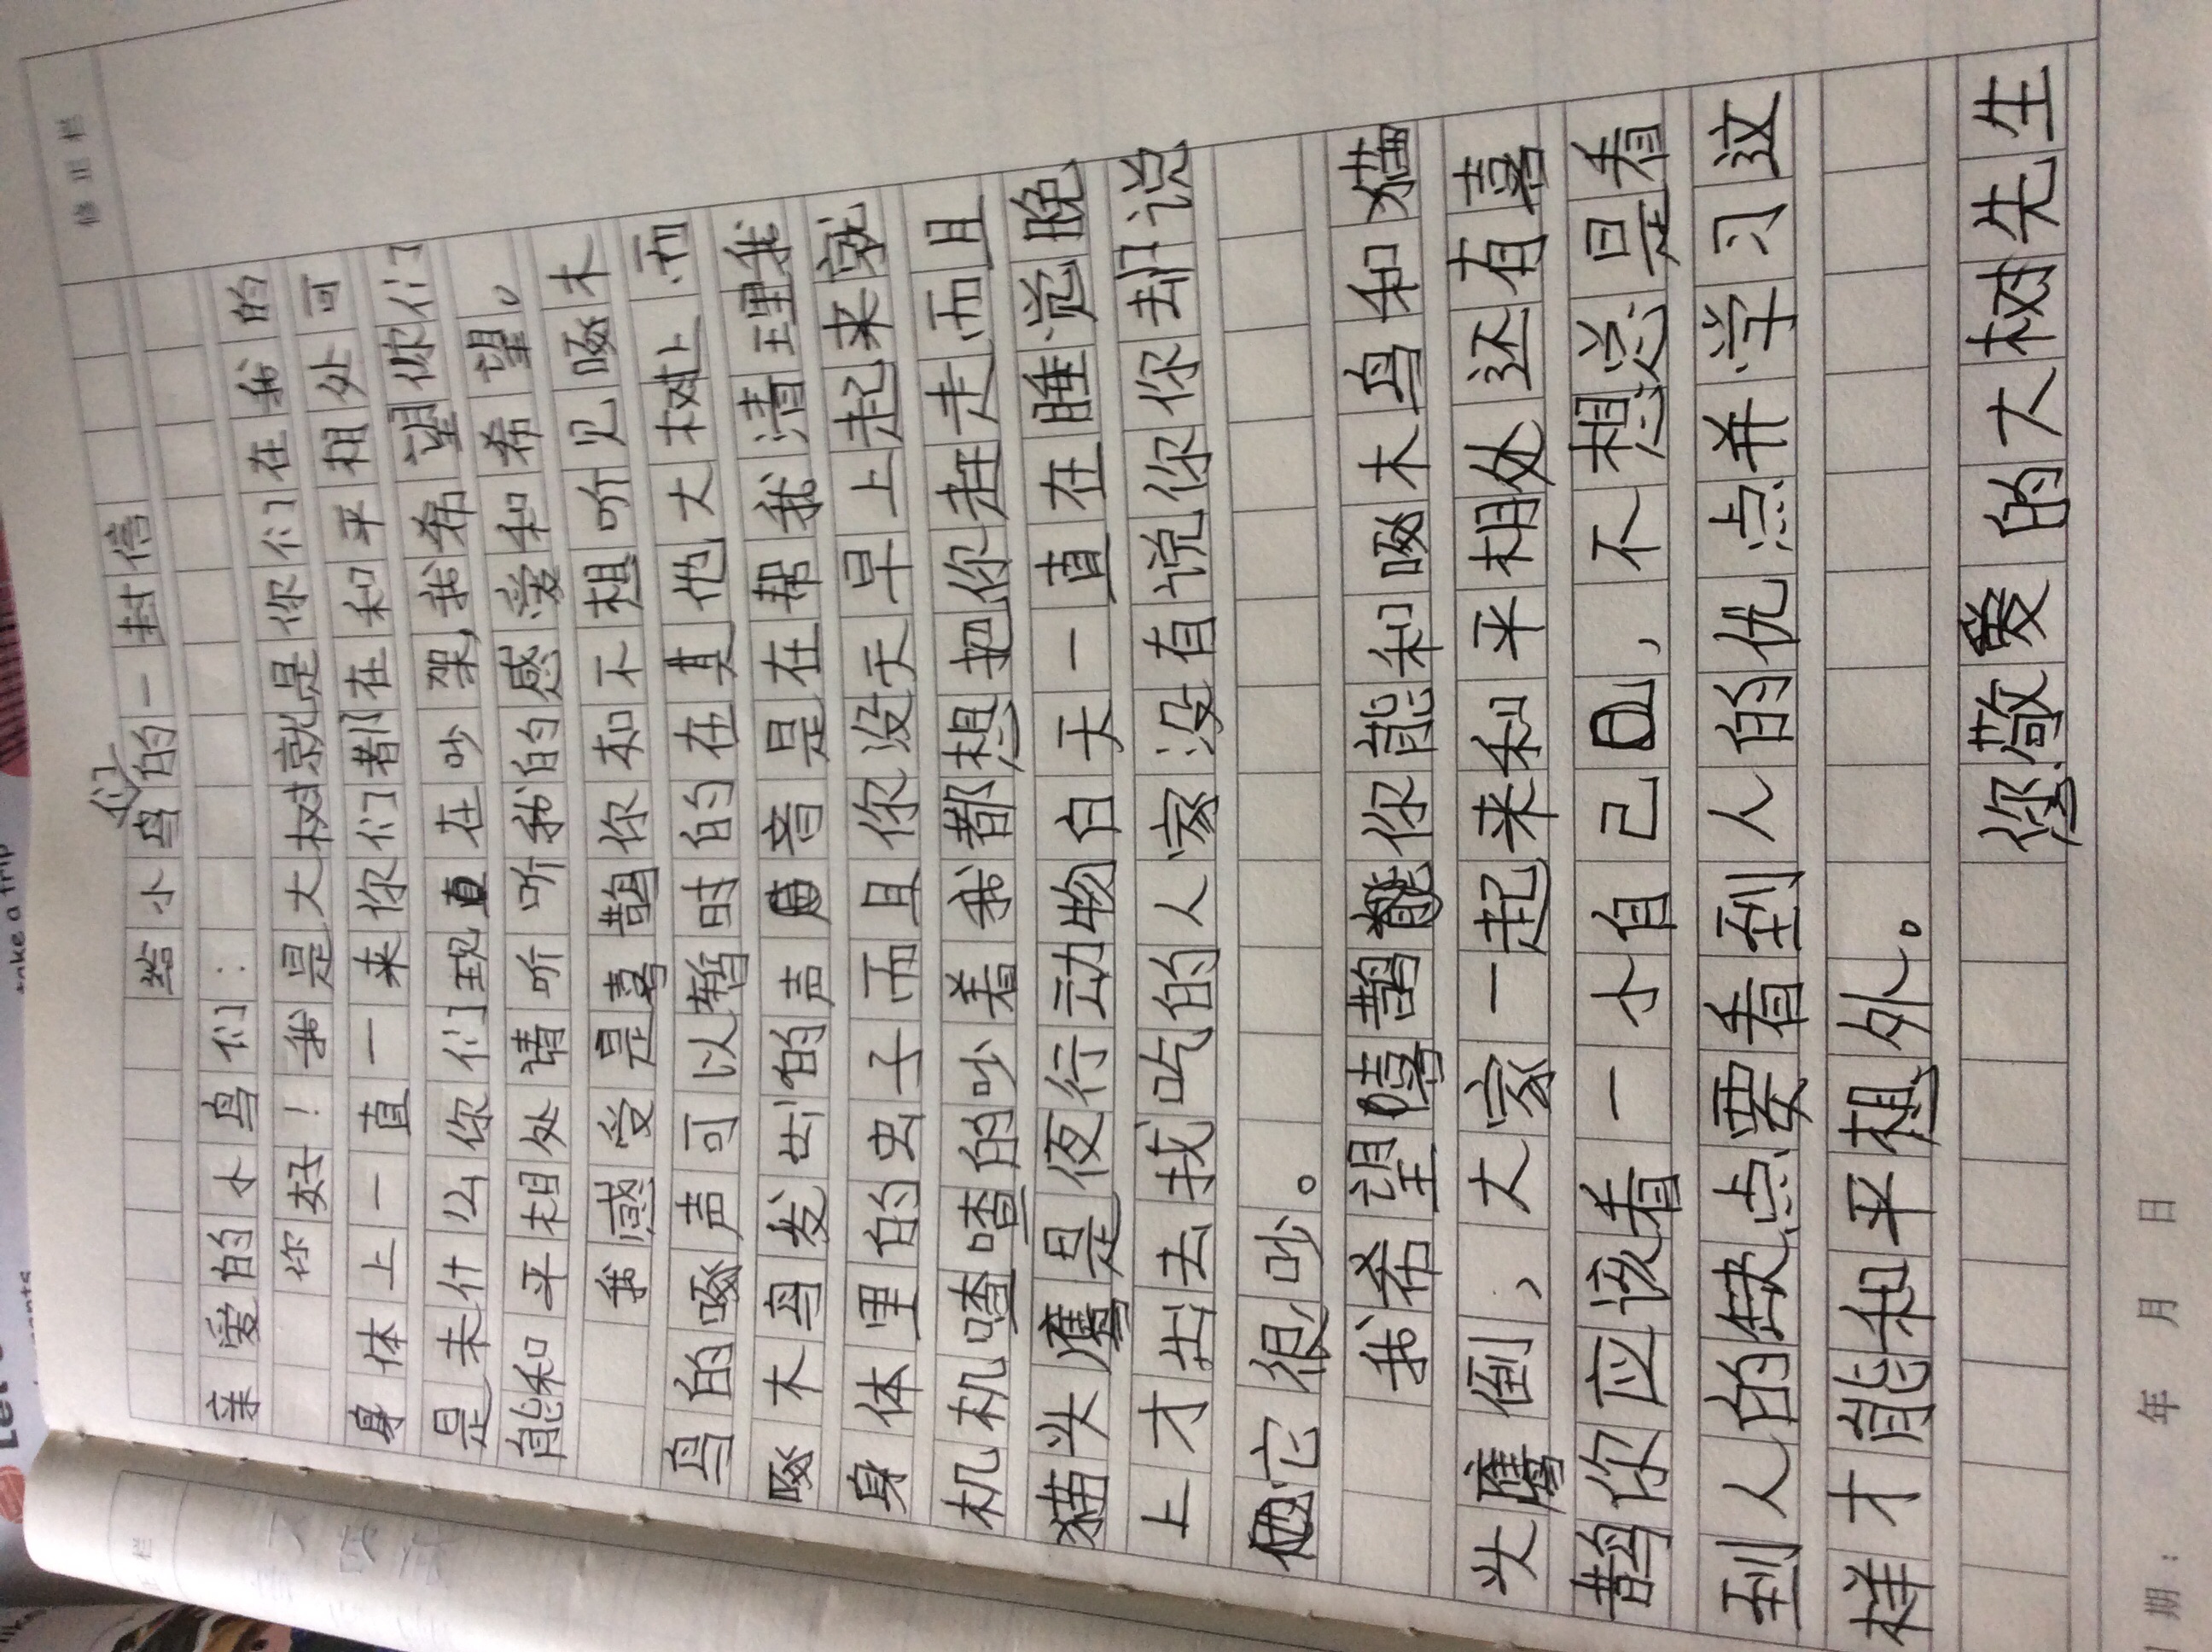 修正栏
给小鸟们的一封信
亲爱的小鸟们:
你好！我是大树就是你们在我的
身体上一直一来你们都在和平相处可
是未什么你们现在吵架,我希望你们
能和平相处请听听我的感爱和希望。
我感受是喜鹊你和不想听见啄木
鸟的啄声可以暂时的在其他大树上,而
啄木鸟发出的声音是在帮我清理我
身体里的虫子而且你没天早上起来就
机机喳喳的吵着我都想把你赶走,而且
猫头鹰是夜行动物白天一直在睡觉,晚
上才出去找吃的人家没有说你你却说
它很吵。
我希望喜鹊你能和啄木鸟和猫
头鹰倒,大家一起来和平相处还有喜
鹊你应该看一小自己,不想总是看
到人的缺点要看到人的优点并学习这
样才能和平相外。
你敬爱的大树先生
期: 年 月 日
take a trip